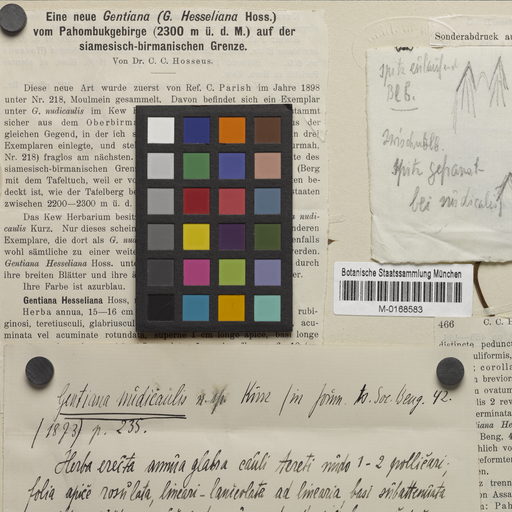 Eine neue Gentiana (G. Hesseliana Hoss.)
vom Pahombukgebirge (2300 m ü. d. M.) auf der
siamesisch-birmanischen Grenze.
Von Dr. C. C. Hosseus.
Diese neue Art wurde zuerst von Ref. C. Parish im Jahre 1898
unter Nr. 218, Moulmein gesammelt. Davon befindet sich ein Exemplar
unter G. nudicaulis im Kew stammt
sicher aus dem Oberbirma der
gleichen Gegend, in der ich drei
Exemplaren einlegte, und
Nr. 218) fraglos am nächsten. te des
siamesisch-birmanischen Gren (Berg
mit dem Tafeltuch, weil er vo be-
deckt ist, wie der Tafelberg be staaten
zwischen 2200—2300 m ü. d.
Das Kew Herbarium besit nudi-
caulis Kurz. Nur dieses schein anderen
Exemplare, die dort als G. nu enfalls
wohl sämtliche zu einer weite erden.
Gentiana Hesseliana Hoss. unte durch
ihre breiten Blätter und ihre
Ihre Farbe ist azurblau.
Gentiana Hesseliana Hoss.
Herba annua, 15—16 cm rubi-
ginosi, teretiusculi, glabriuscul acu-
minata vel acuminate rotundata, superne 1 cm longe apice, basi longe
Sonderabdruck au
Spitz
B&B.
Spitz gepaart
bei nudicaulis
Botanische Staatssammlung München
M-0168583
466 C. C. H
distincte pedunc
uliformis,
; corolla
breviori
ovatum
lis 2 rev
erminata
iana He
Beng. 4
hlich vo
eformten
en.
z trenn
on Assa
n: Pah
Gentiana nudicaulis n. sp. Kurz (in journ. As. Soc. Beng. 42.
(1873) p. 235.
Herba erecta annua glabra cauli tereti nudo 1-2 pollicari;
folia apice rosulata, lineari-lanceolata ad linearia, basi subattenuata